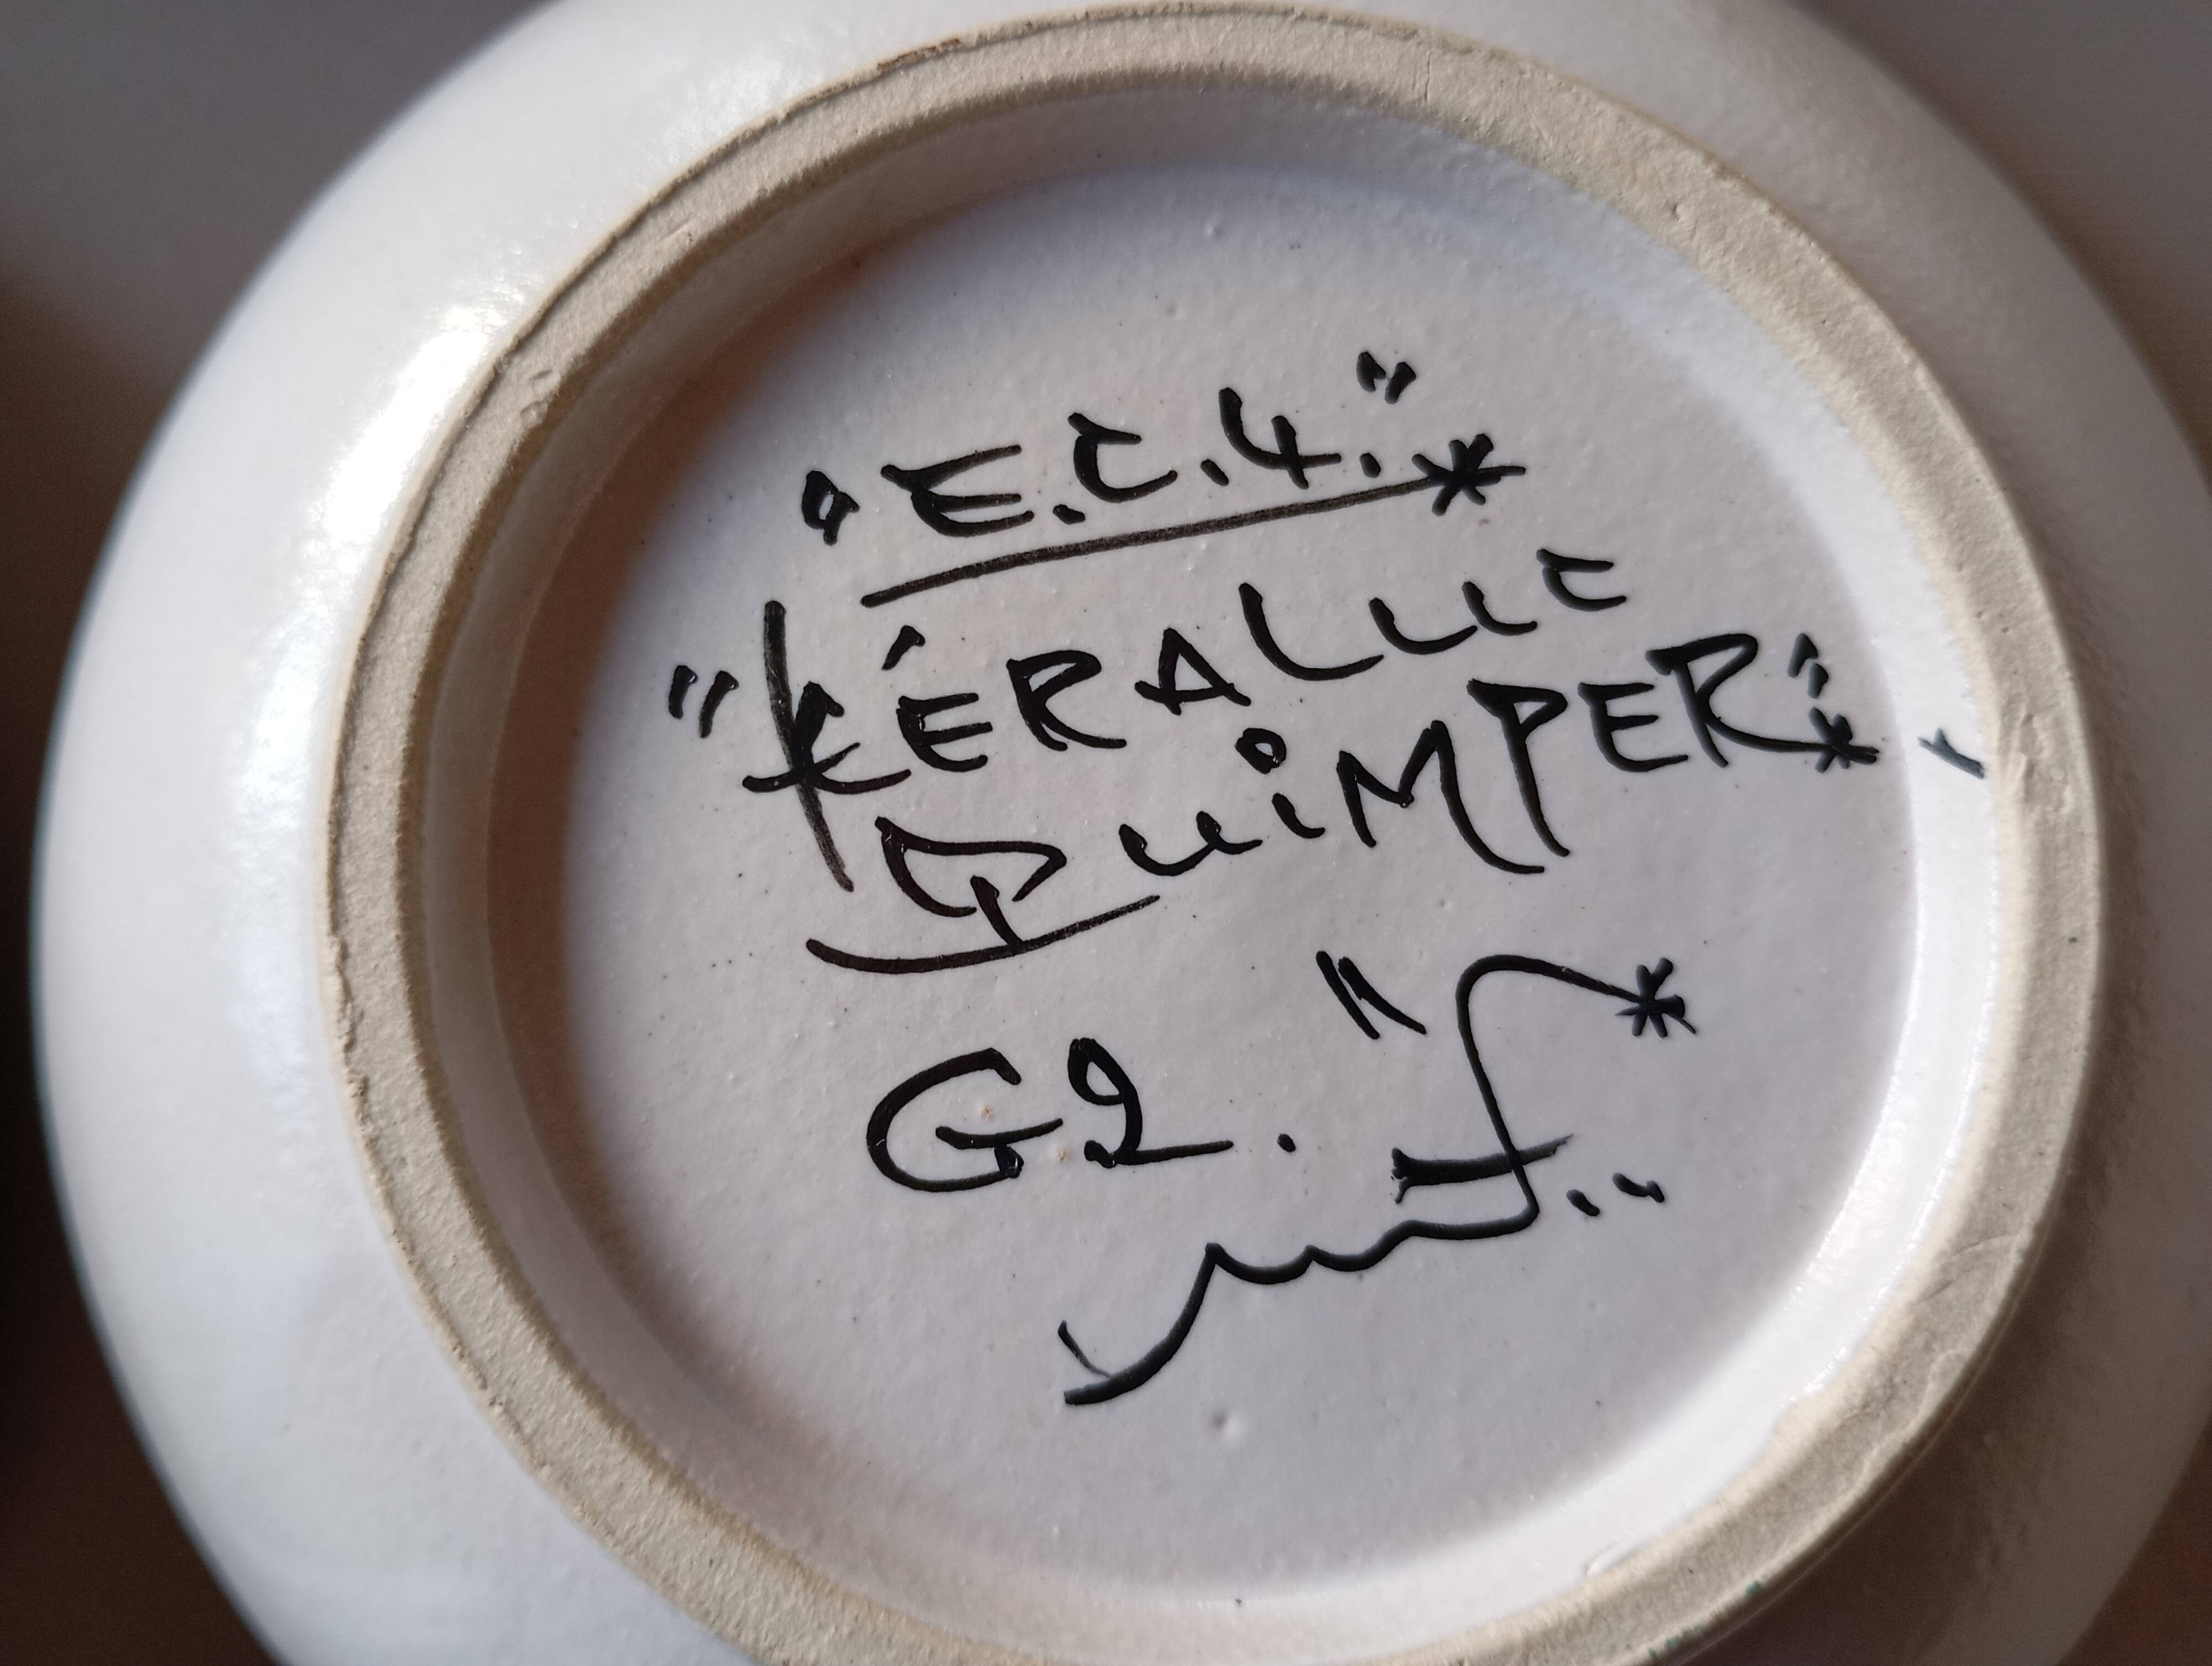 "E.C.4."*
"KÉRALUC
QUiMPER"*
G2.